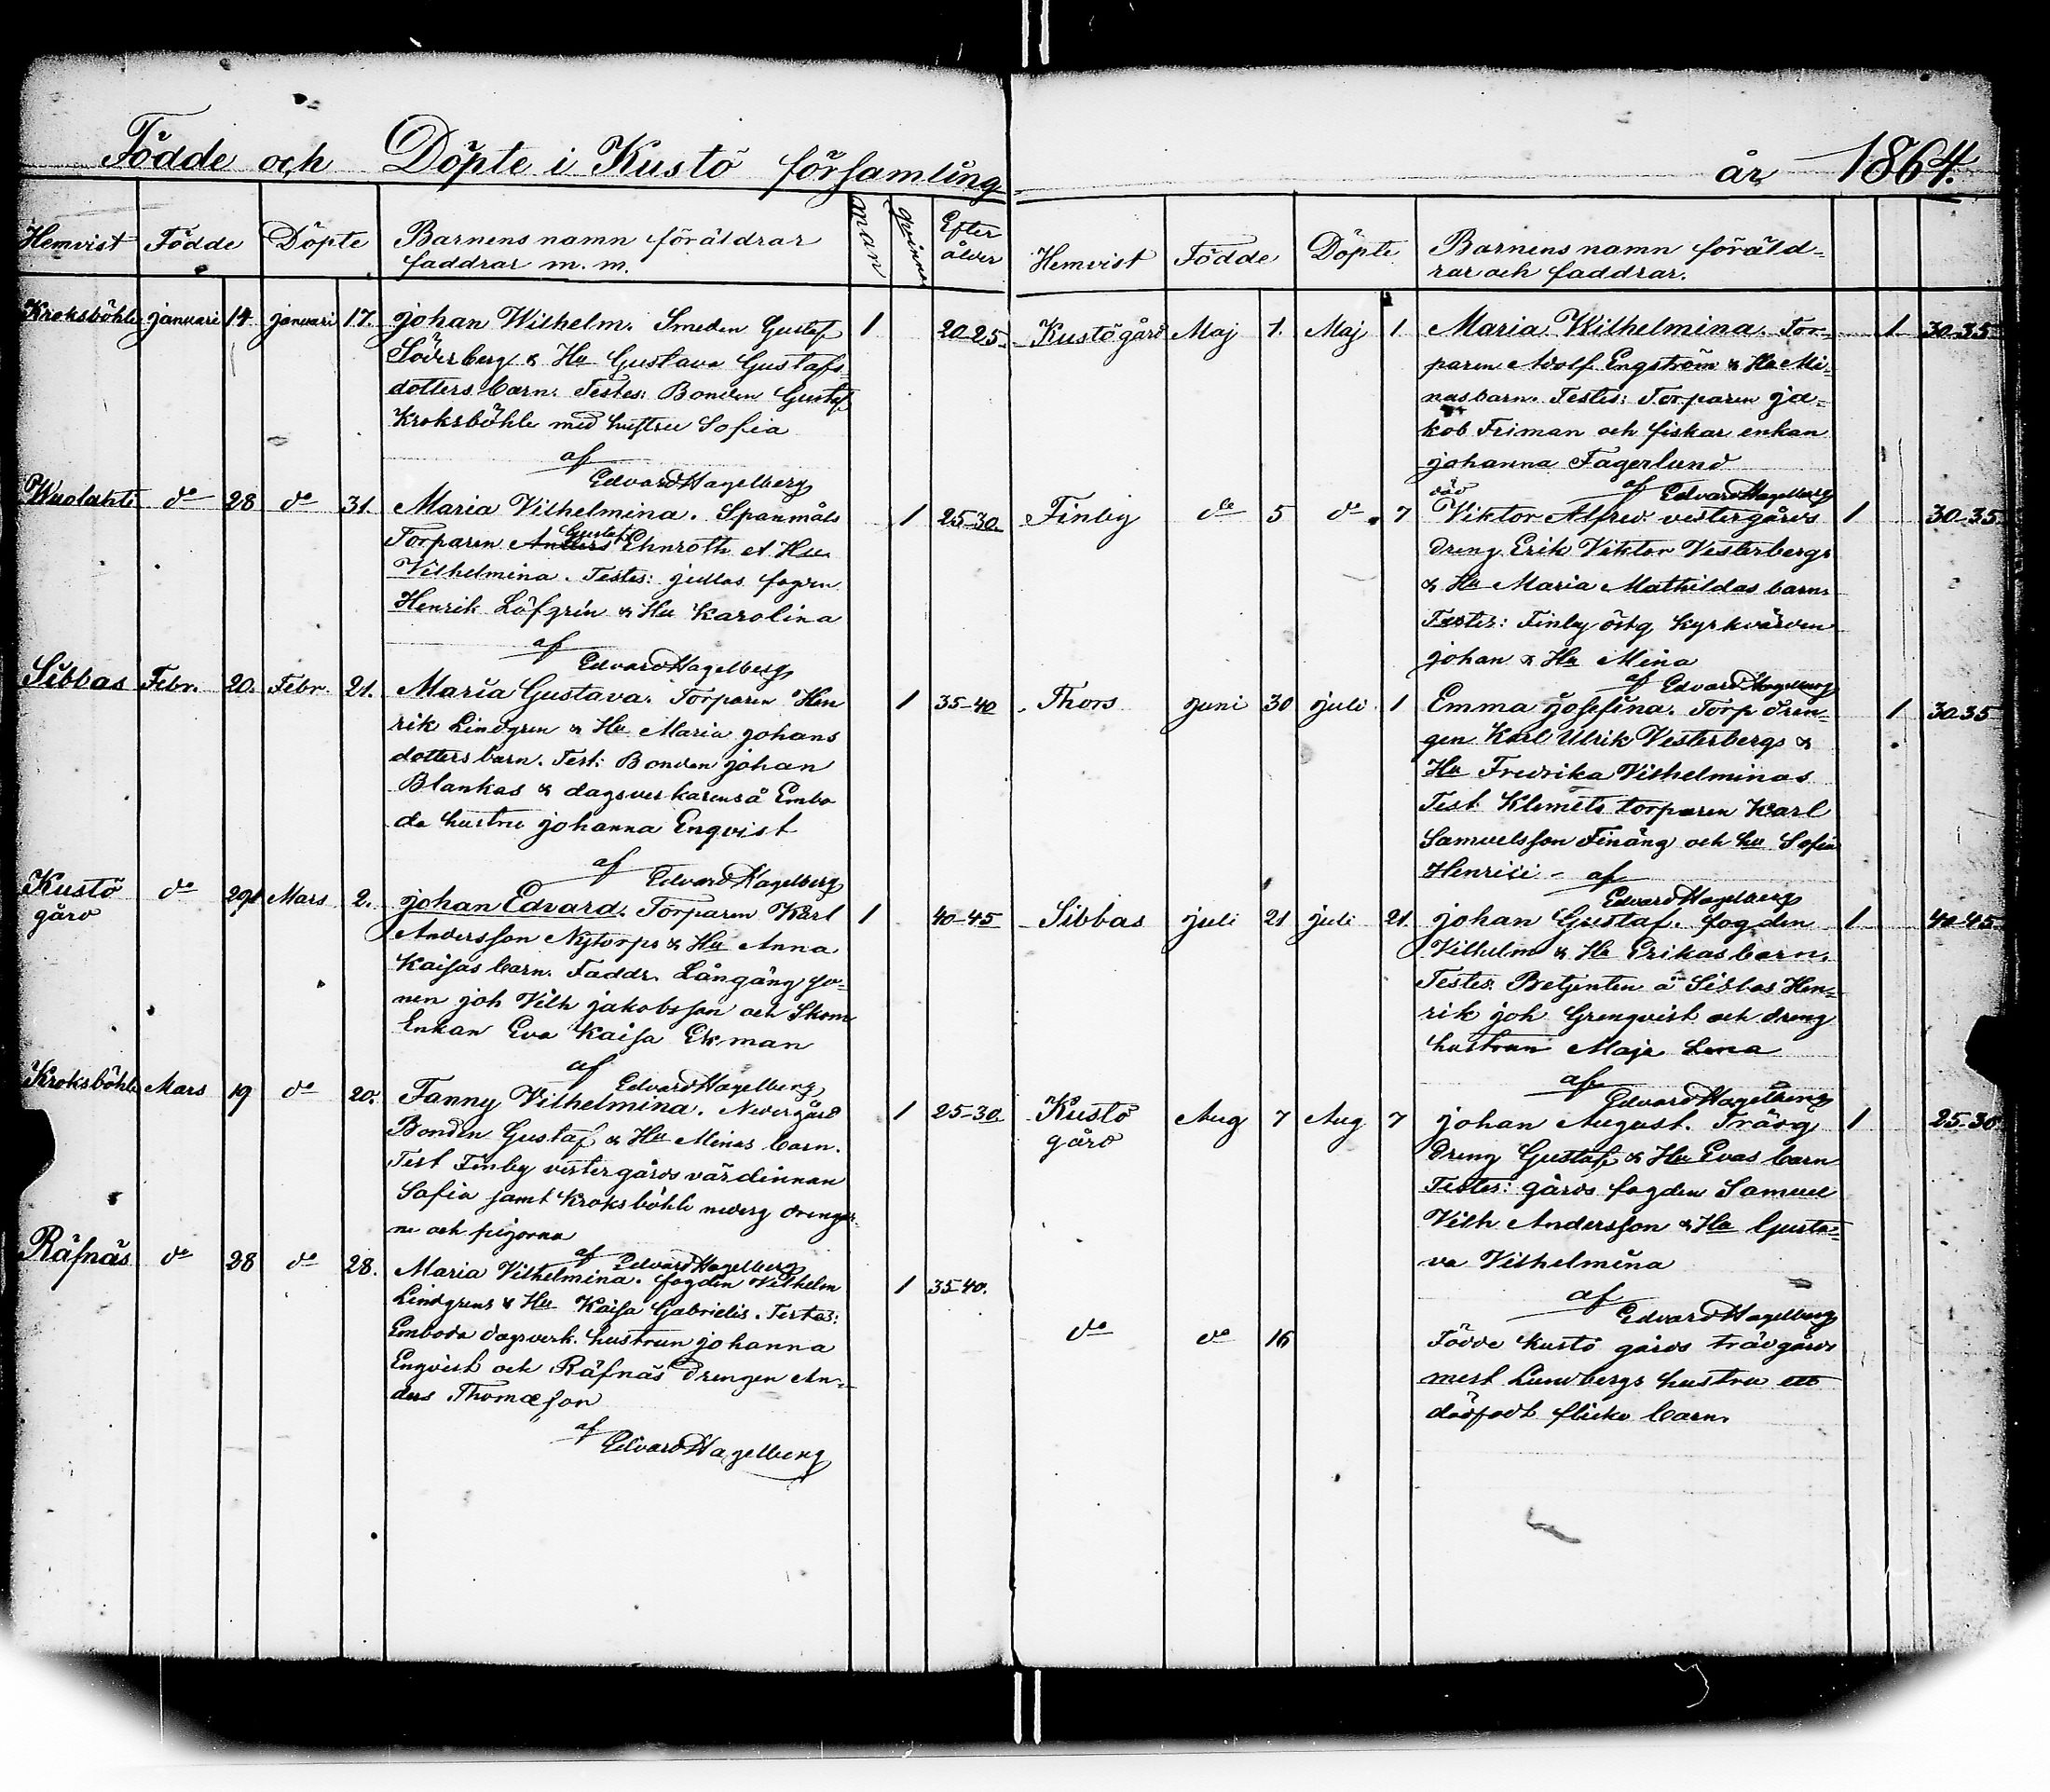 Födde och Döpte i Kustö församling
år 1864.
Hemvist Födde Döpte Barnens namn föräldrar
faddrar m. m.
man
qvinna
Efter
ålder
Kroksböhle januari 14 januari 17. johan Wilhelm. Smeden Gustaf 1 20-25.
Söderberg & Hu Gustava Gustafs-
dotters barn. Testes: Bonden Gustaf
Kroksböhle med hustru Sofia
af
Edvard Hagelberg
Kuolahti do 28 do 31. Maria Vilhelmina. Spanmåls 1 25-30.
Gustaf
Torparen Anders Ehnroth et Hu
Vilhelmina. Testes: fogden
Henrik Löfgrén & Hu Karolina
af
Edvard Hagelberg
Sibbas Febr. 20. Febr. 21. Maria Gustava. Torparen Hen 1 35-40
rik Lindgren & Hu Maria johans
dotters barn. Test: Bonden johan
Blankas & dagsverkarens å Embo
da hustru johanna Enqvist
af
Edvard Hagelberg
Kustö do 29 Mars 2. johan Edvard. Torparen Karl 1 40-45
gård
Andersson Nytorps & Hu Anna
Kaisas barn. Faddr. Långäng
nen joh Vilh jakobsson och Skom
Enkan Eva Kaisa Ekman
af
Edvard Hagelberg
Kroksböhle Mars 19 do 20. Fanny Vilhelmina. Nedergård 1 25-30.
Bonden Gustaf & Hu Minas barn.
Test Finby vestergårds värdinnan
Sofia samt Kroksböhle nederg drengar
ne och pigorna
af Edvard Hagelberg
Räfnäs do 28 do 28. Maria Vilhelmina. fogden Vilhelm 1 35-40.
Lindgrens & Hu Kaisa Gabrielis. Testes:
Emboda dagsverk. hustrun johanna
Enqvist och Räfnäs Drengen An-
ders Thomæson
af
Edvard Hagelberg
Hemvist Födde Döpte Barnens namn föräld-
rar och faddrar.
Kustö gård Maj 1. Maj 1 Maria Wilhelmina. Tor- 1 30-35
paren Adolf Engström & Hu Mi-
nas barn. Testes: Torparen ja-
kob Friman och fiskar enkan
johanna Fagerlund
af Edvard Hagelberg
död
Finby do 5 do 7 Viktor Alfred. vestergårds 1 30-35
dreng Erik Viktor Vesterbergs
& Hu Maria Mathildas barn.
Testes: Finby östg kyrkvärden
johan & Hu Mina
af Edvard Hagelberg
Thors juni 30 juli 1 Emma josefina. Torp dren- 1 30-35
gen Karl Ulrik Vesterbergs &
Hu Fredrika Vilhelminas
Test. Klemets torparen Karl
Samuelsson Finäng och hu Sofia
Henrici - af
Edvard Hagelberg
Sibbas juli 21 juli 21. johan Gustaf. fogden 1 40-45
Vilhelm & Hu Erikas barn.
Testes. Betjenten å Sibbas Hen-
rik joh Grenqvist och dreng
hustrun Maja Lena
af
Edvard Hagelberg
Kustö Aug 7 Aug 7 johan August. Trädg 1 25-30
gård
dreng Gustaf & Hu Evas barn
Testes: gårds fogden Samuel
Vilh Andersson & Hu Gusta-
va Vilhelmina
af
Edvard Hagelberg
do do 16 Födde kustö gårds trädgårds
mest Lundbergs hustru ett
dödfödt flicko barn.